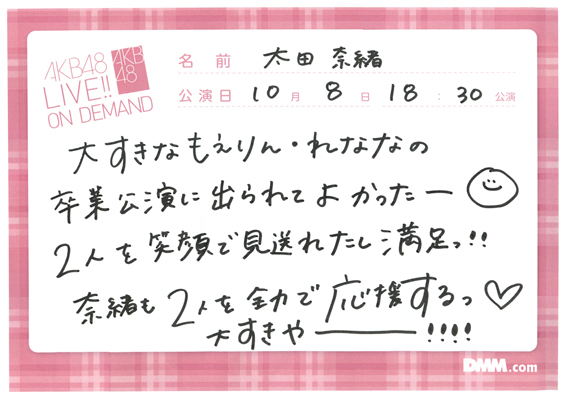 AKB48
LIVE!!
ON DEMAND
AKB
48
名前 太田 奈緒
公演日 10月 8日 18:30公演
大すきなもえりん・れななの
卒業公演に出られてよかったー
2人を笑顔で見送れたし満足っ!!
奈緒も2人を全力で応援するっ♡
大すきやー!!!!
DMM.com